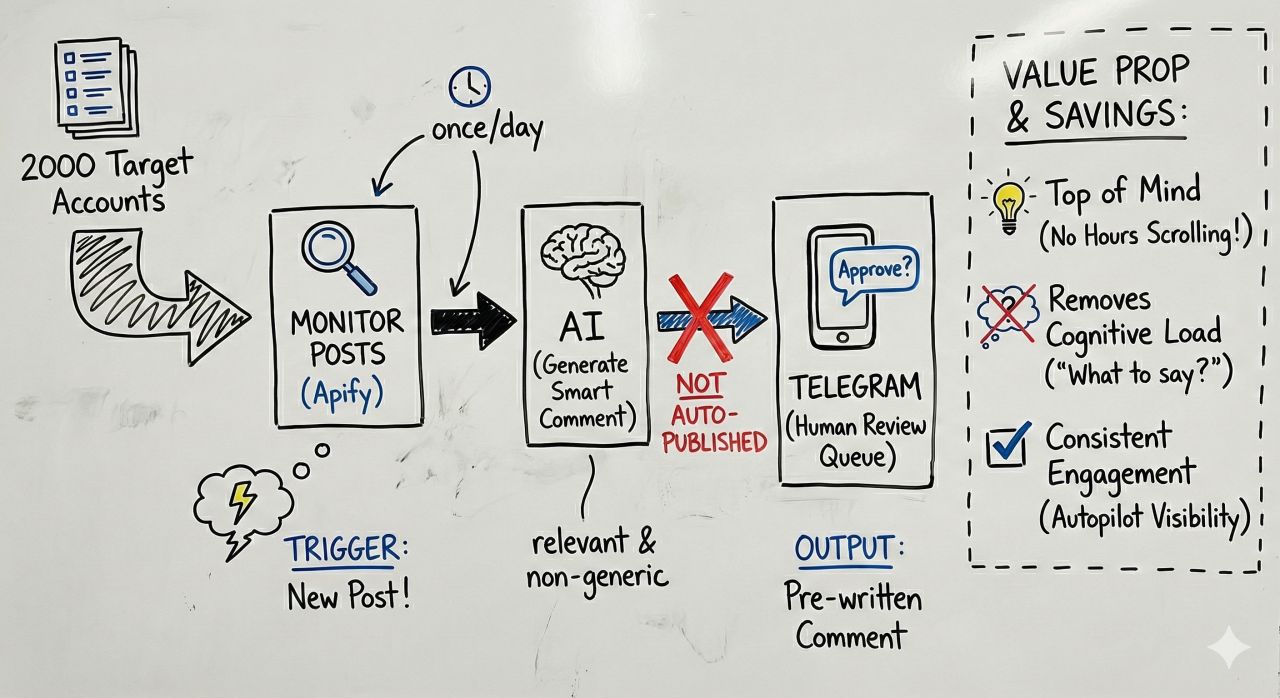 2000 Target
Accounts
once/day
MONITOR
POSTS
(Apify)
TRIGGER:
New Post!
AI
(Generate
Smart
Comment)
relevant &
non-generic
NOT
AUTO-
PUBLISHED
Approve?
TELEGRAM
(Human Review
Queue)
OUTPUT:
Pre-written
Comment
VALUE PROP
& SAVINGS:
Top of Mind
(No Hours Scrolling!)
?
Removes
Cognitive Load
("What to say?")
Consistent
Engagement
(Autopilot Visibility)